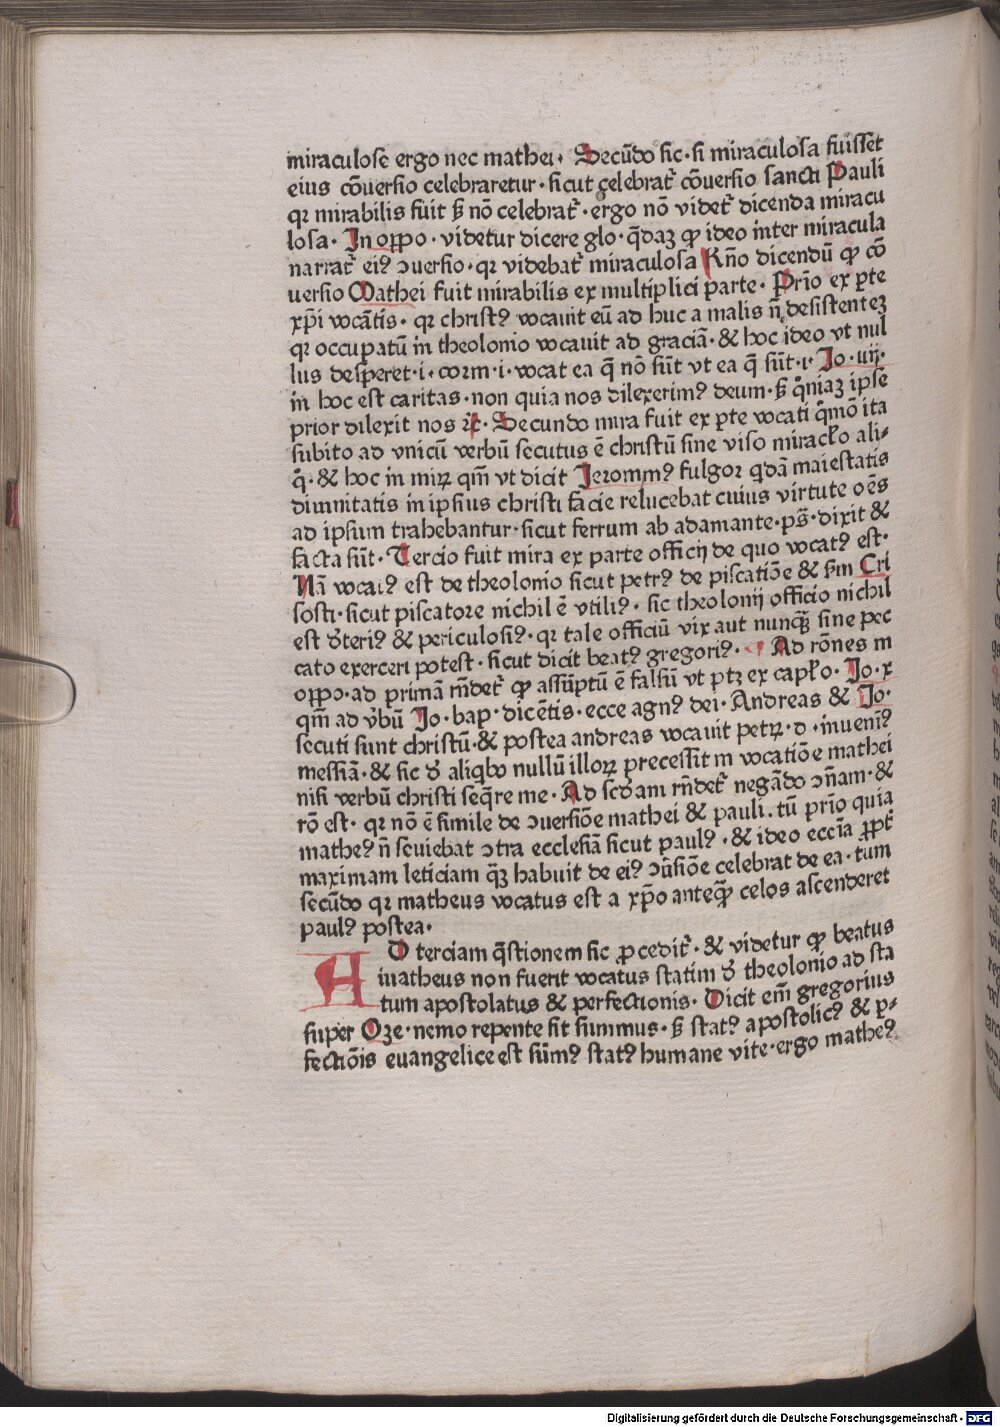 miraculose ergo nec mathei· Secūdo sic·si miraculosa fuisset
eius cōuersio celebraretur·sicut celebrat̄ cōuersio sancti Pauli
qꝛ mirabilis fuit sꝫ nō celebrat̄·ergo nō videt̄ dicenda miracu
losa· In oꝓpo·videtur dicere glo·q̄daꝫ ꝙ ideo inter miracula
narrat̄ eiꝰ ↄuersio·qꝛ videbat̄ miraculosa Rn̄o dicendū ꝙ cō
uersio Mathei fuit mirabilis ex multiplici parte· Prīo ex ꝑte
xp̄i vocātis·qꝛ christꝰ vocauit eū ad huc a malis n̄ desistenteꝫ
qꝛ occupatū in theolonio vocauit ad graciā·& hoc ideo vt nul
lus desperet·i·corin·i·vocat ea q̄ nō sūt vt ea q̄ sūt·i· Jo·iiij·
in hoc est caritas·non quia nos dilexerimꝰ deum·sꝫ q̄niaꝫ ipse
prior dilexit nos ꝛc̄· Secundo mira fuit ex ꝑte vocati q̄mō ita
subito ad vnicū verbū secutus ē christū sine viso miracło ali-
q̄·& hoc in miꝝ qm̄ vt dicit Jeronimꝰ fulgor q̄dā maiestatis
diuinitatis in ipsius christi facie relucebat cuius virtute oēs
ad ipsum trahebantur·sicut ferrum ab adamante·ps̄·dixit &
facta sūt· Tercio fuit mira ex parte officij de quo vocatꝰ est·
Nā vocatꝰ est de theolonio sicut petrꝰ de piscatiōe & sm̄ Cri
sosti·sicut piscatore nichil ē vtiliꝰ· sic theolonij officio nichil
est d̄teriꝰ & periculosiꝰ·qꝛ tale officiū vix aut nunqꝫ̄ sine pec
cato exerceri potest·sicut dicit beatꝰ gregoriꝰ· Ad rōnes in
oꝓpo·ad primā rn̄det̄ ꝙ assūptū ē falsū vt ptꝫ ex capło· Jo·x
qm̄ ad v̄bū Jo·bap·dicētis·ecce agnꝰ dei·Andreas & Jo·
secuti sunt christū·& postea andreas vocauit petꝝ·d·inueniꝰ
messiā·& sic d̄ aliqbo nullū illoꝝ precessit in vocatiōe mathei
nisi verbū christi seq̄re me· Ad scd̄am rn̄det̄ negādo ↄn̄am·&
rō est·qꝛ nō ē simile de ↄuersiōe mathei & pauli·tū prīo quia
matheꝰ n̄ seuiebat ↄtra ecclesiā sicut paulꝰ·& ideo eccīa ꝓpt̄
maximam leticiam q̄ꝫ habuit de eiꝰ ↄūsiōe celebrat de ea·tum
secūdo qꝛ matheus vocatus est a xp̄o anteqꝫ̄ celos ascenderet
paulꝰ postea·
AD terciam q̄stionem sic ꝓcedit̄·& videtur ꝙ beatus
matheus non fuerit vocatus statim d̄ theolonio ad sta
tum apostolatus & perfectionis· Dicit em̄ gregorius
super Oze·nemo repente fit summus·sꝫ statꝰ apostolicꝰ & ꝑ-
fectiōis euangelice est sūmꝰ statꝰ humane vite·ergo matheꝰ
Digitalisierung gefördert durch die Deutsche Forschungsgemeinschaft - DFG